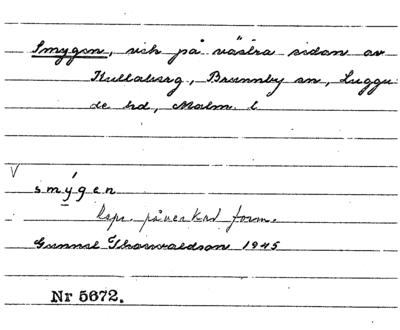 Smygen, vick på västra sidan av
Kullaberg, Brunnby sn, Luggu-
de hd, Malm. l
V
smýgen
Rspr. påverkad form.
Gunnel Thorvaldson 1945
Nr 5672.